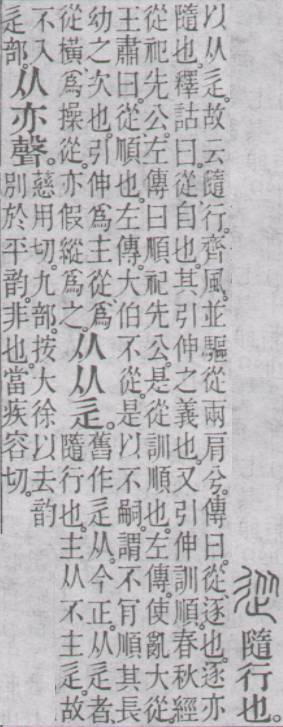 從 隨行也。
以从辵。故云隨行。齊風。並驅從兩肩兮。傳曰。從、逐也。逐亦
隨也。釋詁曰。從、自也。其引伸之義也。又引伸訓順。春秋經
從祀先公。左傳曰順祀先公。是從訓順也。左傳。使亂大從。
王肅曰。從、順也。左傳。大伯不從。是以不嗣。謂不肎順其長
幼之次也。引伸爲主從、爲
從橫、爲操從。亦假縱爲之。
从从辵。
舊作辵从。今正。从辵者、
隨行也。主从不主辵。故
不入
辵部。
从亦聲。
慈用切。九部。按大徐以去韵
別於平韵。非也。當疾容切。